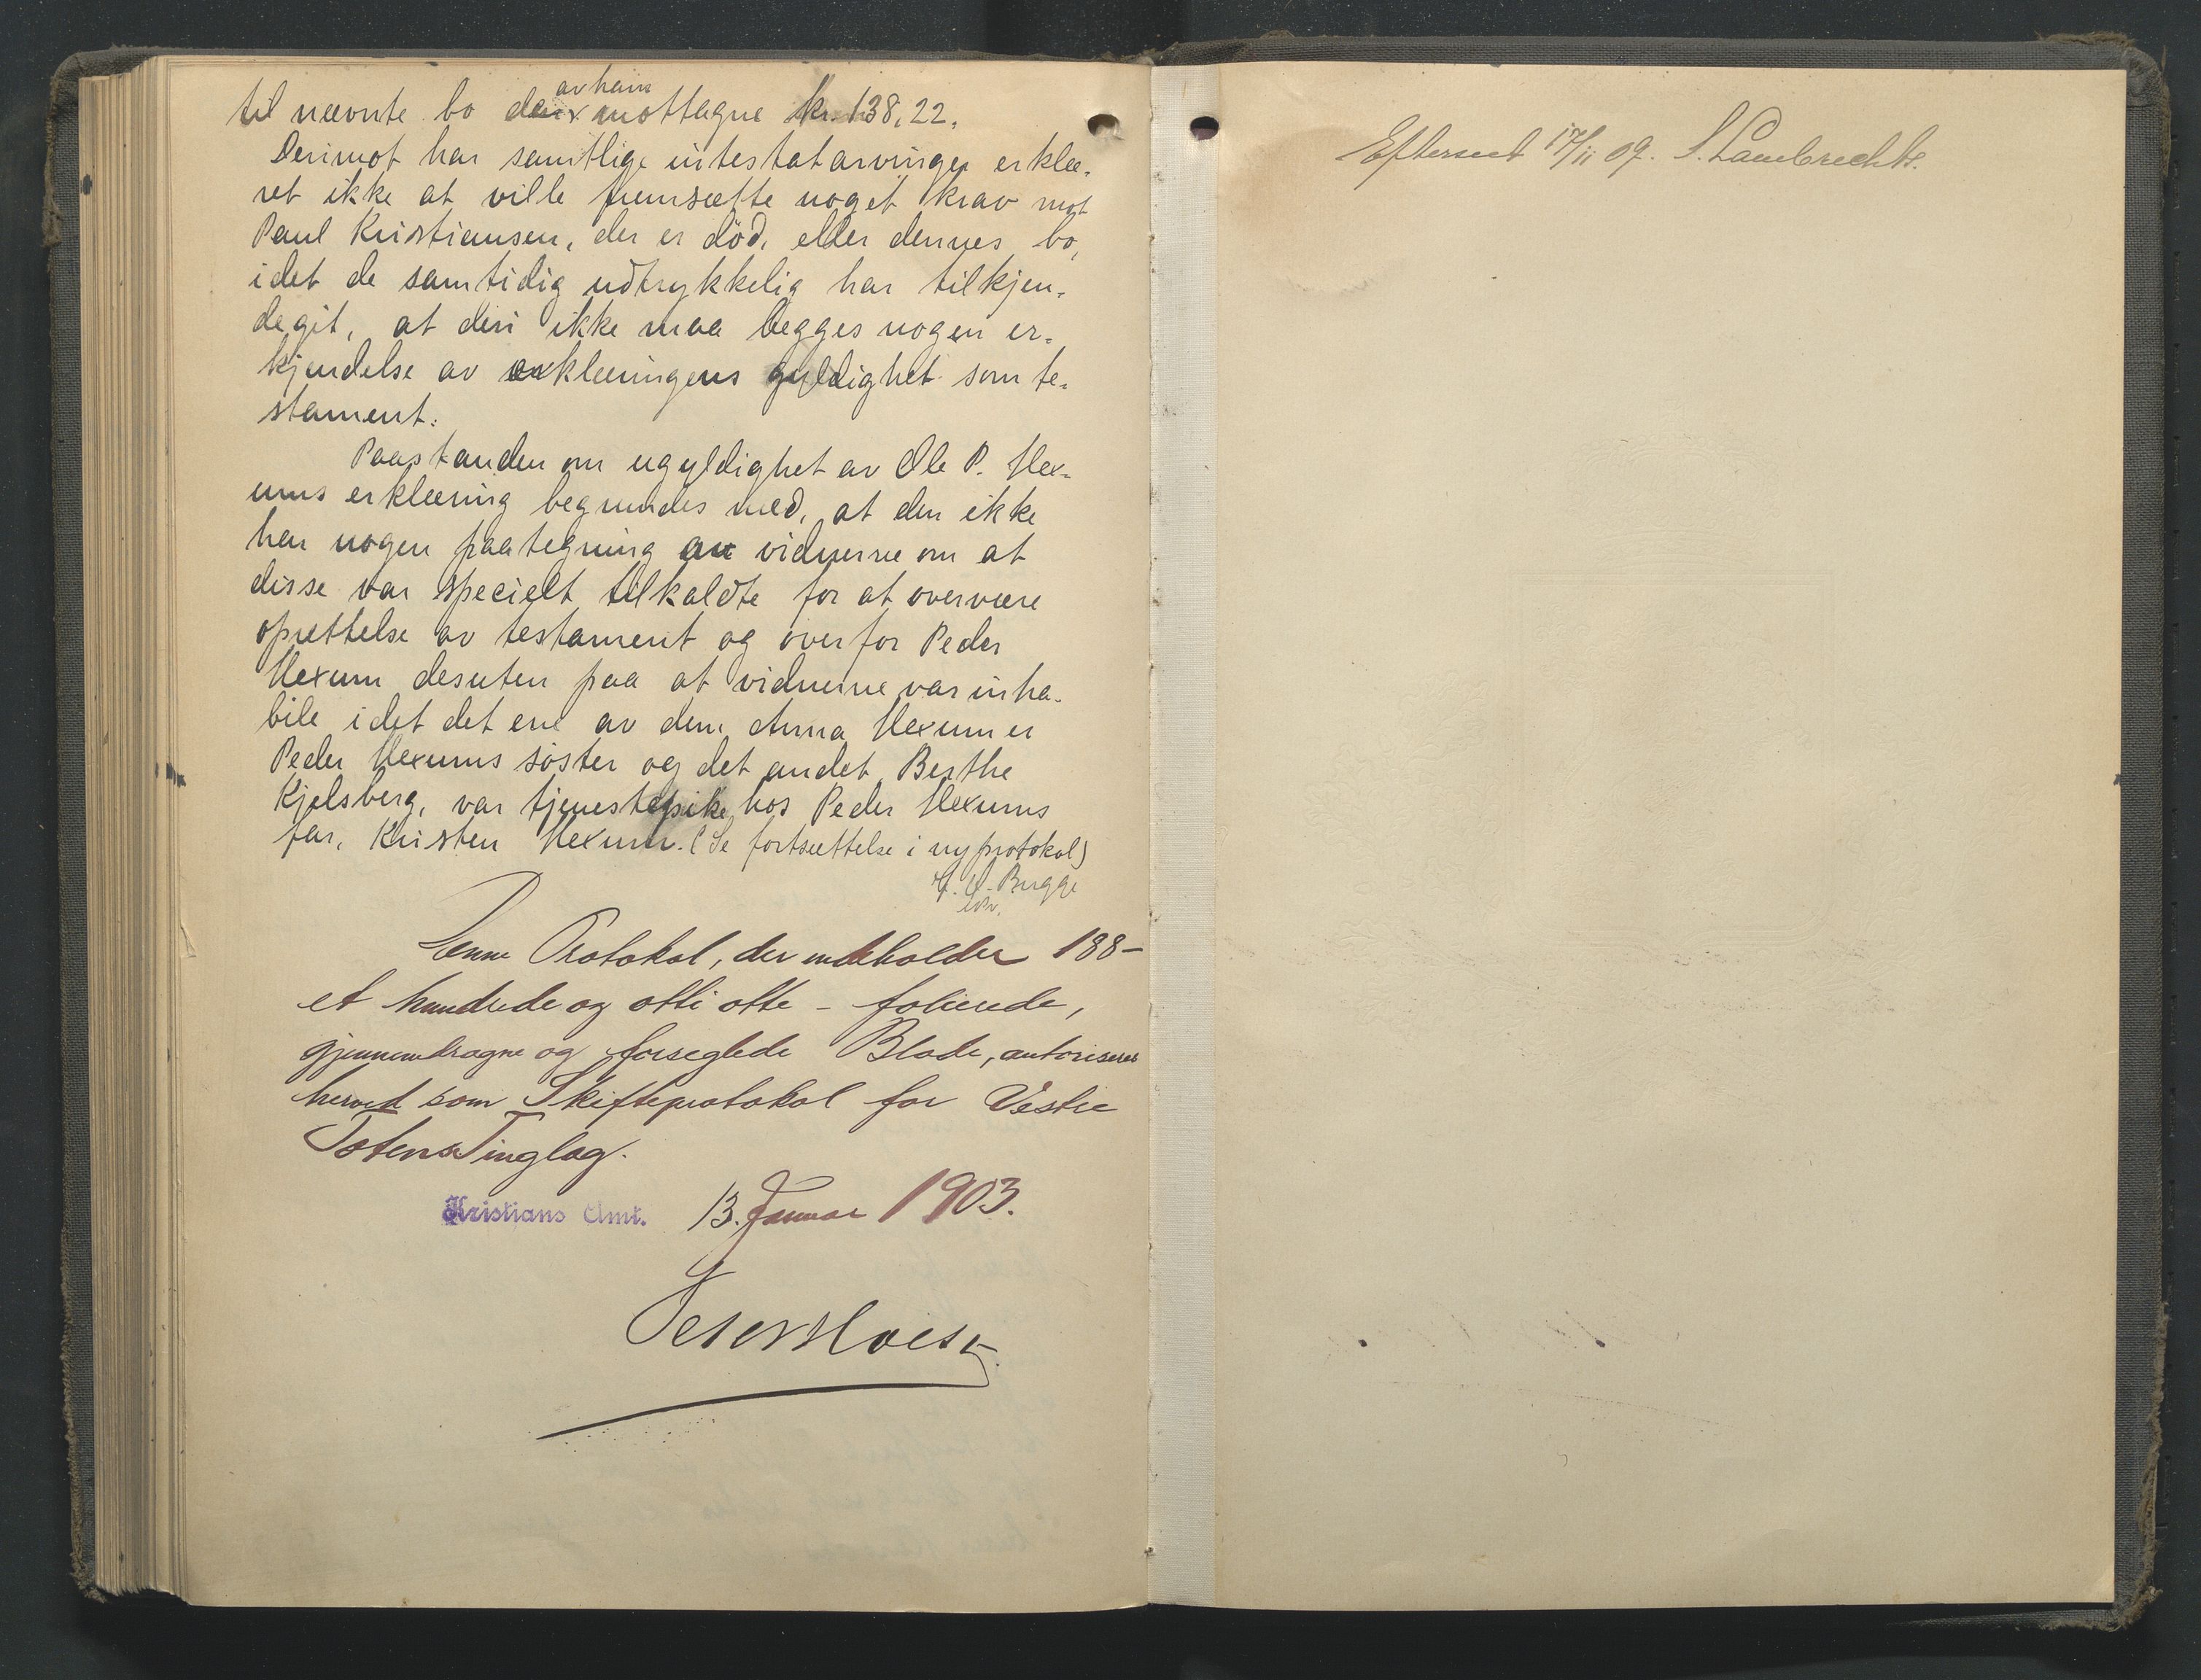 til nævnte bo den av ham mottagne kr. 138,22.
Derimot har samtlige intestatarvinger erklæ-
ret ikke at ville fremsætte noget krav mot
Paul Kristiansen, der er död, eller dennes bo,
idet de samtidig udtrykkelig har tilkjen-
degit, at deri ikke maa lægges nogen er-
kjendelse av erklæringens gyldighet som te-
stament.
Paastanden om ugyldighet av Ole P. Hex-
ums erklæring begrundes med, at den ikke
har nogen paategning av vidnerne om at
disse var specielt tilkaldte for at overvære
oprettelse av testament og overfor Peder
Hexum desuten paa at vidnerne var inha-
bile idet det ene av dem Anna Hexum er
Peder Hexums söster og det andet, Berthe
Kjelsberg, var tjenestepike hos Peder Hexums
far, Kristen Hexum. (Se fortsættelse i ny protokol)
Bugge
Denne Protokol, der indeholder 188 -
et hundrede og otti otte - folierede,
gjennemdragne og forseglede Blade, autoriseres
herved som Skifteprotokol for Vestre
Totens Tinglag.
Kristians Amt. 13. Januar 1903.
Peter Holst
Efterseet 17/11 09. S. Lambrechts.